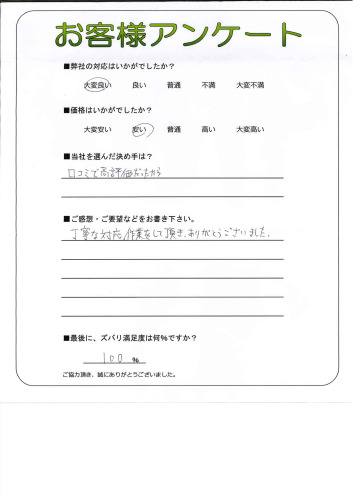 お客様アンケート
■弊社の対応はいかがでしたか？
大変良い 良い 普通 不満 大変不満
■価格はいかがでしたか？
大変安い 安い 普通 高い 大変高い
■当社を選んだ決め手は？
口コミで高評価だったから
■ご感想・ご要望などをお書き下さい。
丁寧な対応、作業をして頂き、ありがとうございました。
■最後に、ズバリ満足度は何%ですか？
100 %
ご協力頂き、誠にありがとうございました。